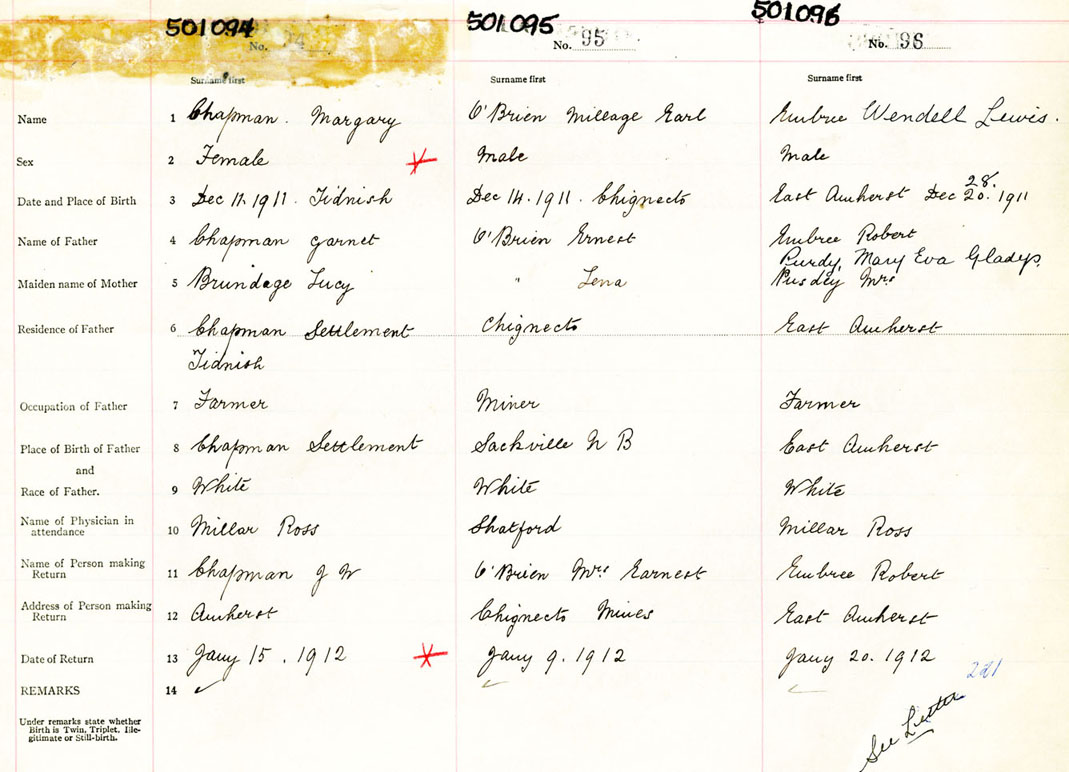 501094 501095 501096
No. 94 No. 95 No. 96
Surname first Surname first Surname first
Name 1 Chapman. Margary O'Brien Milleage Earl Embree Wendell Lewis.
Sex 2 Female Male Male
28.
Date and Place of Birth 3 Dec 11. 1911. Tidnish Dec 14. 1911. Chignecto East Amherst Dec 20. 1911
Name of Father 4 Chapman Garnet O'Brien Ernest Embree Robert
Purdy, Mary Eva Gladys.
Maiden name of Mother 5 Brundage Lucy " Lena Pusdey Mrs
Residence of Father 6 Chapman Settlement Chignecto East Amherst
Tidnish
Occupation of Father 7 Farmer Miner Farmer
Place of Birth of Father 8 Chapman Settlement Sackville N B East Amherst
and
Race of Father. 9 White White White
Name of Physician in
attendance 10 Millar Ross Shatford Millar Ross
Name of Person making
Return 11 Chapman J W O'Brien Mrs Earnest Embree Robert
Address of Person making
Return 12 Amherst Chignecto Mines East Amherst
Date of Return 13 Jany 15. 1912 Jany 9. 1912 Jany 20. 1912
REMARKS 14
Under remarks state whether
Birth is Twin, Triplet, Ille-
gitimate or Still-birth.
See Letter